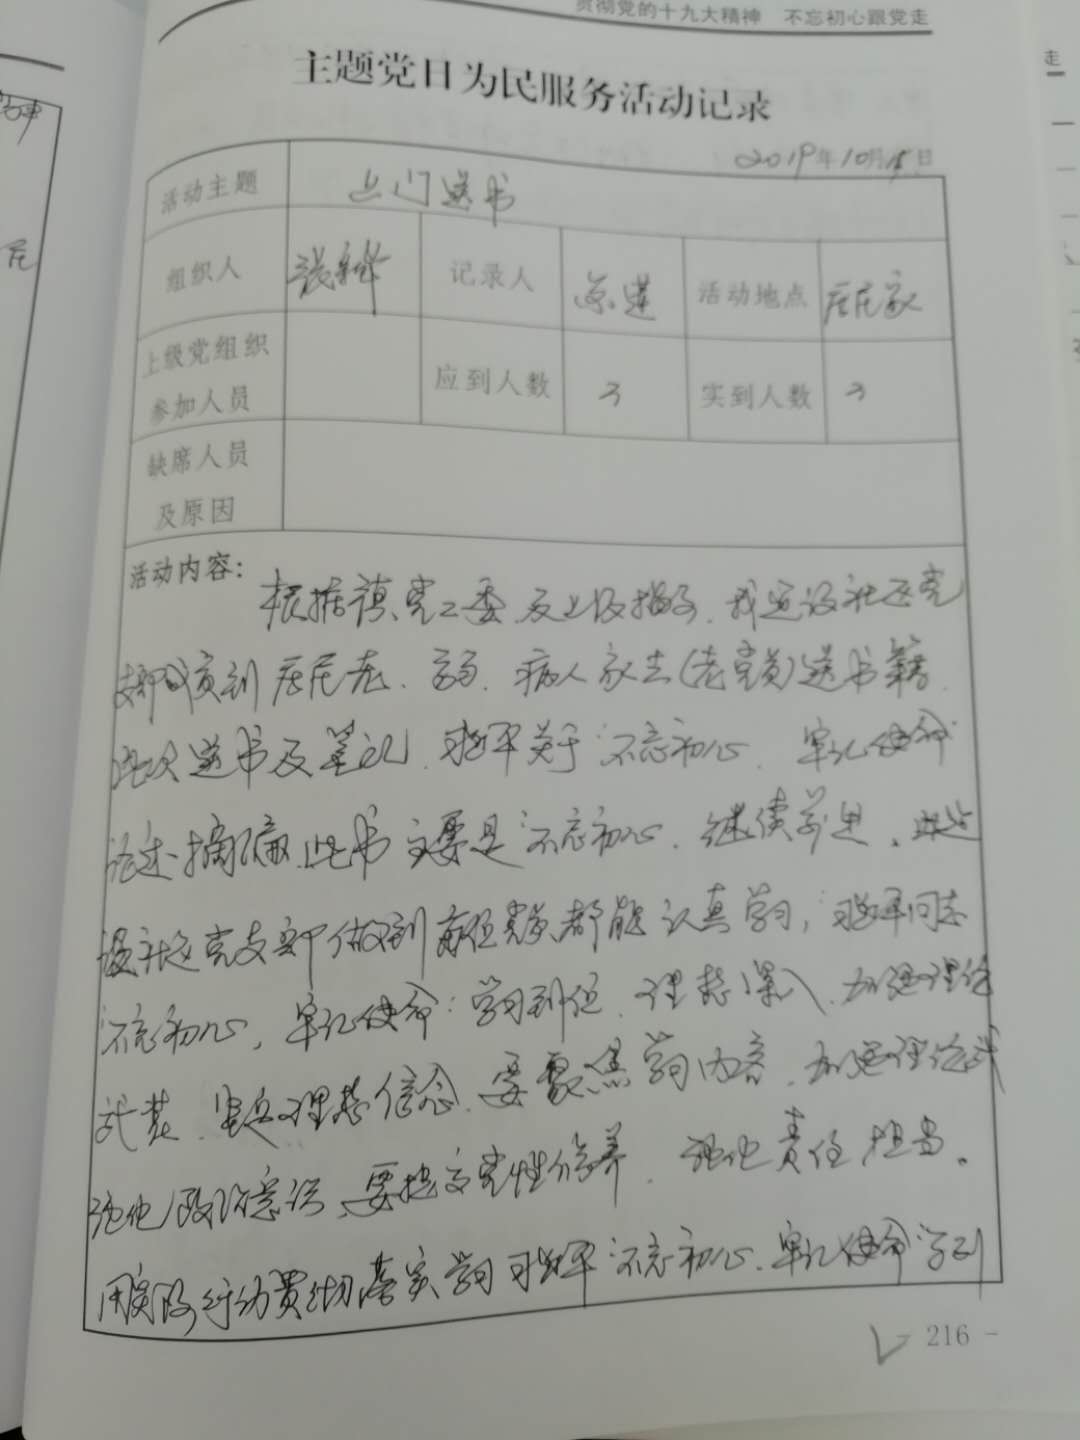 贯彻党的十九大精神 不忘初心跟党走
主题党日为民服务活动记录
2019年10月15日
活动主题 上门送书
组织人 记录人 活动地点 居民家
上级党组织参加人员 应到人数 3 实到人数 3
缺席人员及原因
活动内容：
根据镇党工委及上级指示，我建设社区党
支部成员到居民老、弱、病人家去(老党员)送书籍，
此次送书及笔记，习近平关于“不忘初心、牢记使命”
论述摘编，此书主要是“不忘初心、继续前进”，
设社区党支部做到党员都能认真学习，习近平同志
不忘初心，牢记使命：学习到位、理想深入、加强理论
武装、坚定理想信念、要聚焦学习内容、加强理论武
强化政治意识、要提高党性修养、强化责任担当。
用实际行动贯彻落实学习习近平“不忘初心、牢记使命
- 216 -